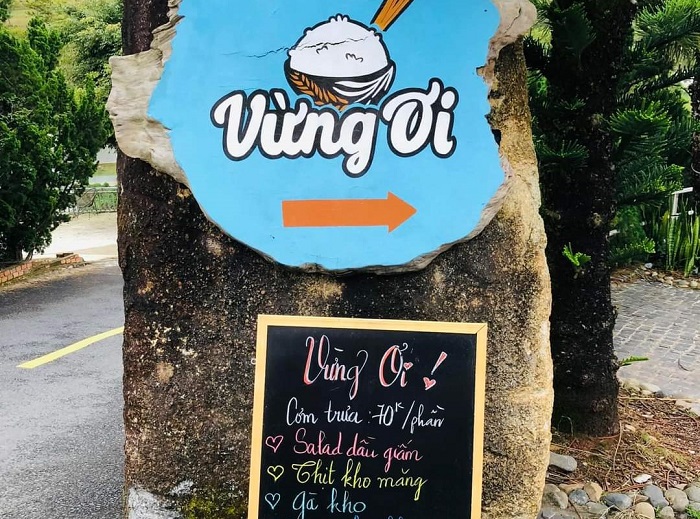 Vừng Ơi
Vừng Ơi!
Cơm trưa: 70ᴷ/phần
Salad dầu giấm
Thịt kho măng
gà kho